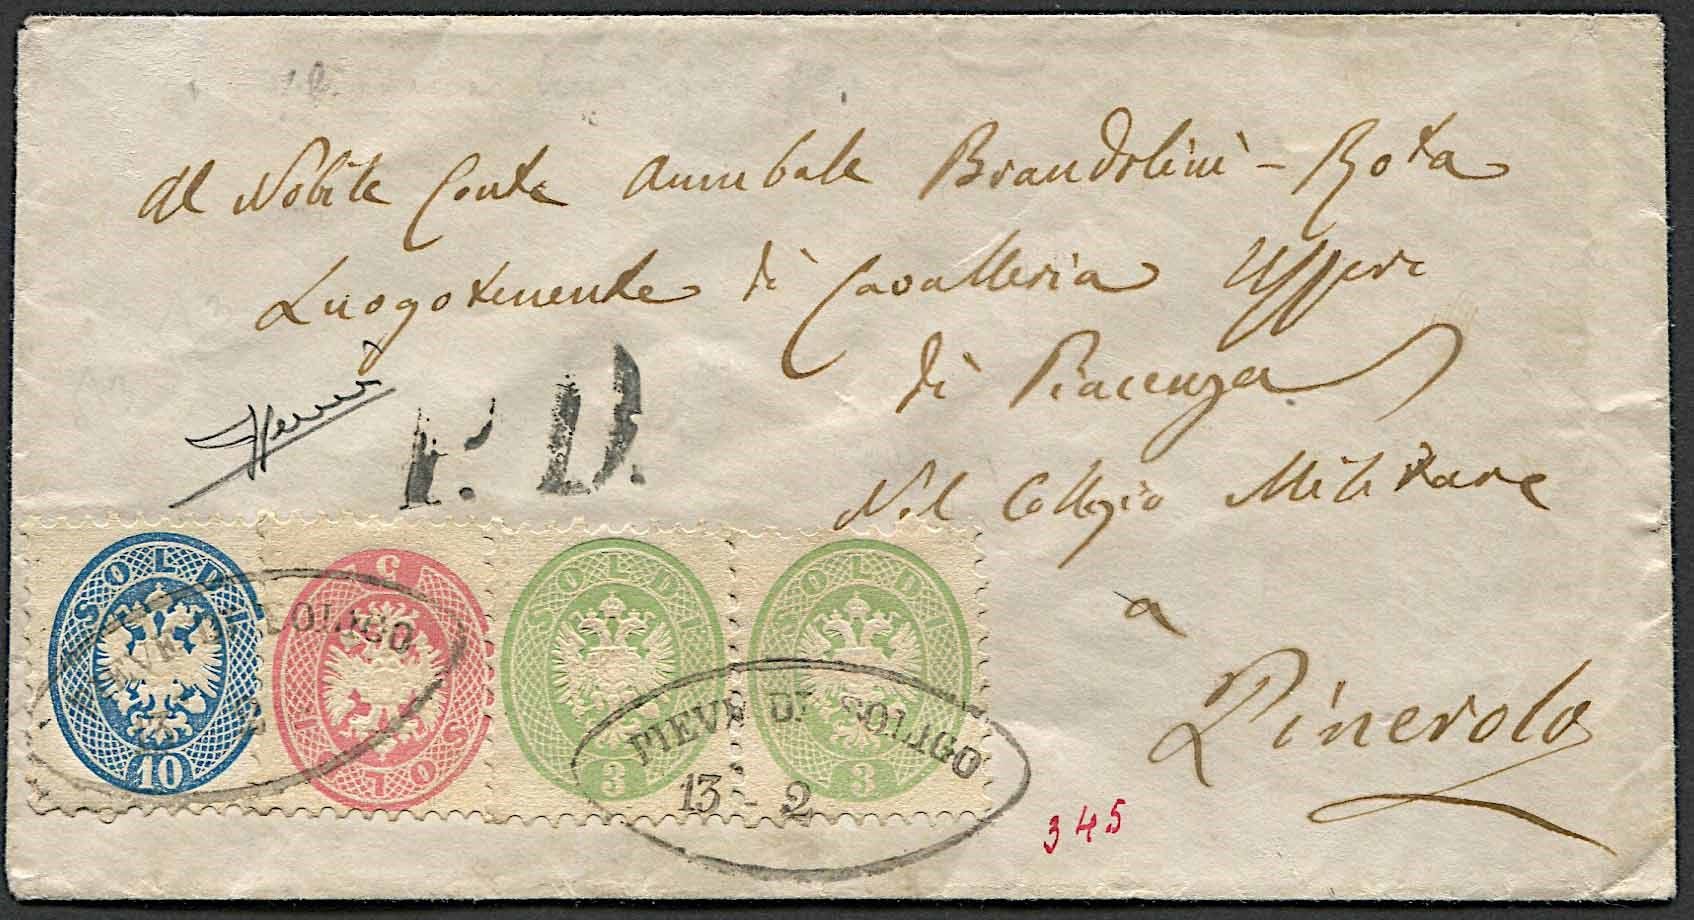 Al Nobile Conte Annibale Brandolini - Rota
Luogotenente di Cavalleria Usseri
di Piacenza
Nel Collegio Militare
a
Pinerolo
P. D.
SOLDI
10
SOLDI
5
SOLDI
3
SOLDI
3
PIEVE DI SOLIGO
PIEVE DI SOLIGO
13 - 2
345